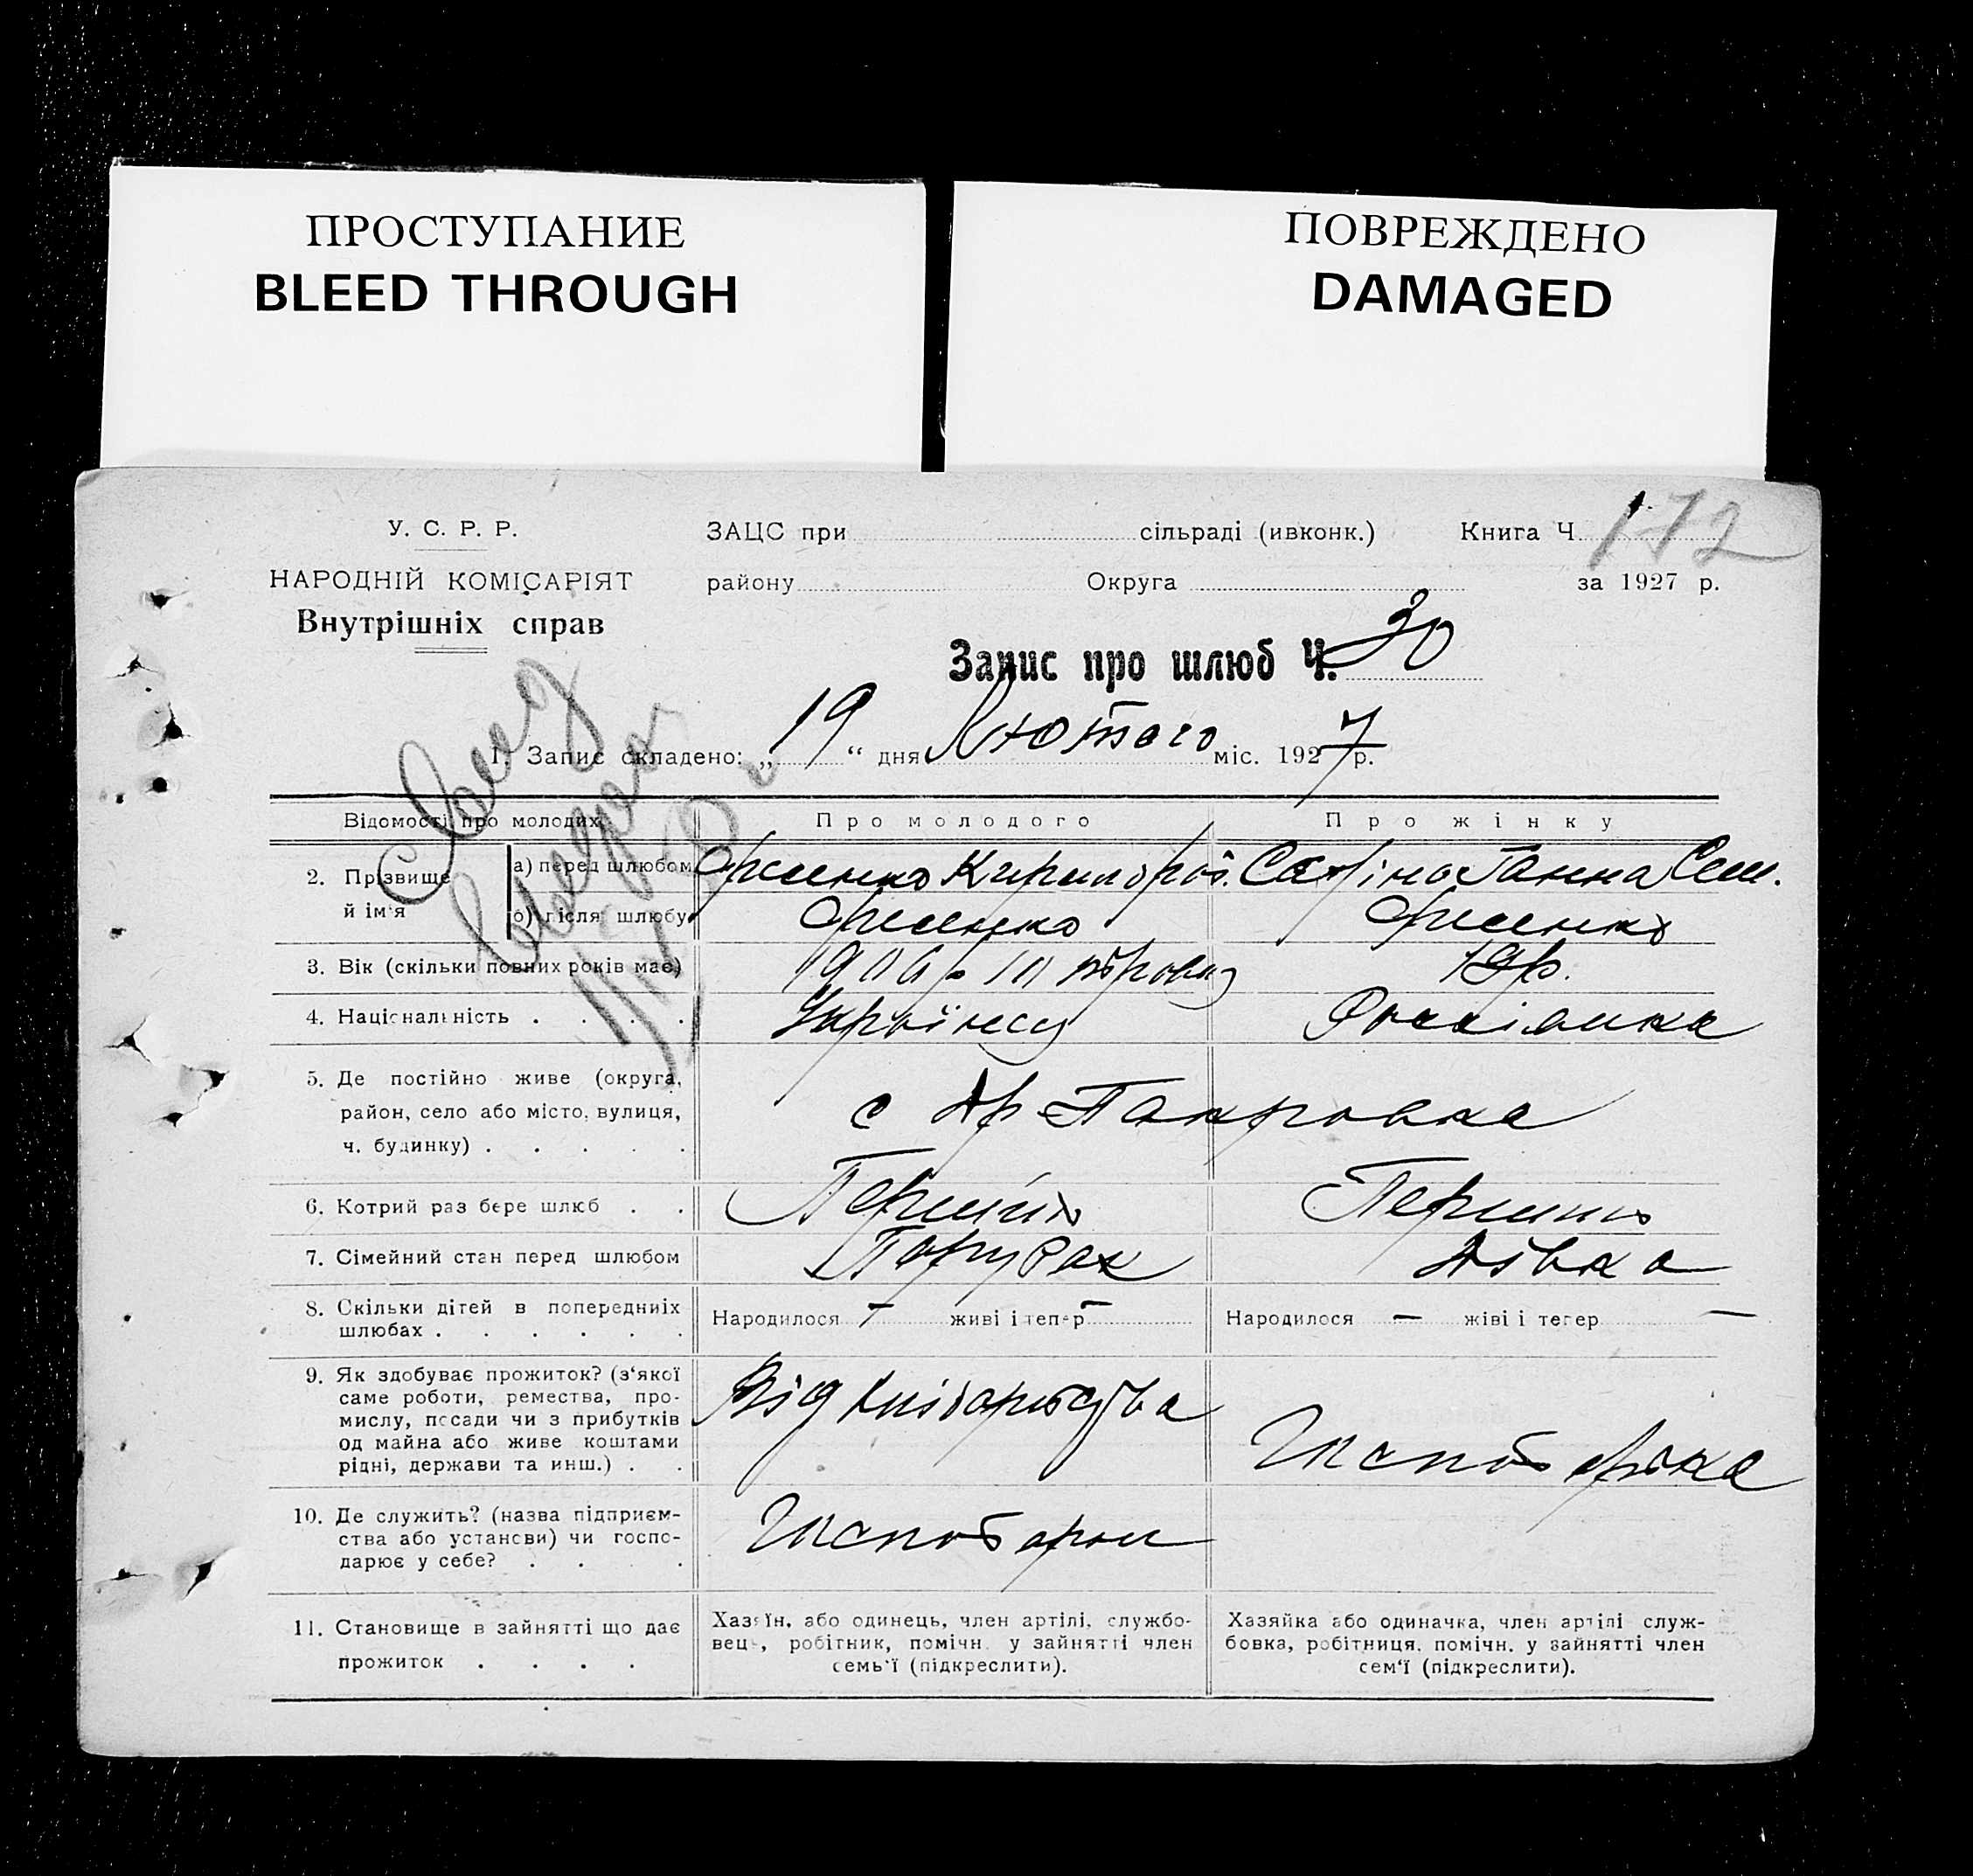 ПРОСТУПАНИЕ
BLEED THROUGH
ПОВРЕЖДЕНО
DAMAGED
У. С. Р. Р.
НАРОДНІЙ КОМІСАРІЯТ
Внутрішніх справ
ЗАЦС при сільраді (ивконк.) Книга Ч. 172
району Округа за 1927 р.
Запис про шлюб Ч. 30
1. Запис складено: „ 19 “ дня Лютого міс. 1927 р.
Відомості про молодих Про молодого Про жінку
2. Прізвище й ім'я
а) перед шлюбом Ганна Сем.
б) після шлюбу
3. Вік (скільки повних років має) 1906 р. 19 р.
4. Національність . . . . Українец
5. Де постійно живе (округа,
район, село або місто, вулиця,
ч. будинку) . . . . .
с Ар Покровка
6. Котрий раз бере шлюб . . Перший Перший
7. Сімейний стан перед шлюбом Парубок Дівка
8. Скільки дітей в попередниіх
шлюбах . . . . . .
Народилося — живі і тепер —
Народилося — жіві і тепер —
9. Як здобуває прожиток? (з‘якої
саме роботи, ремества, про-
мислу, посади чи з прибутків
од майна або живе коштами
рідні, держави та инш.) . .
Від хліборобства
10. Де служить? (назва підприєм-
ства або установи) чи госпо-
дарює у себе? . . . .
11. Становище в зайнятті що дає
прожиток . . . .
Хазяїн, або одинець, член артілі, службо-
вець, робітник, помічн. у зайнятті член
семь‘ї (підкреслити).
Хазяйка або одиначка, член артілі служ-
бовка, робітниця, помічн. у зайнятті член
сем‘ї (підкреслити).